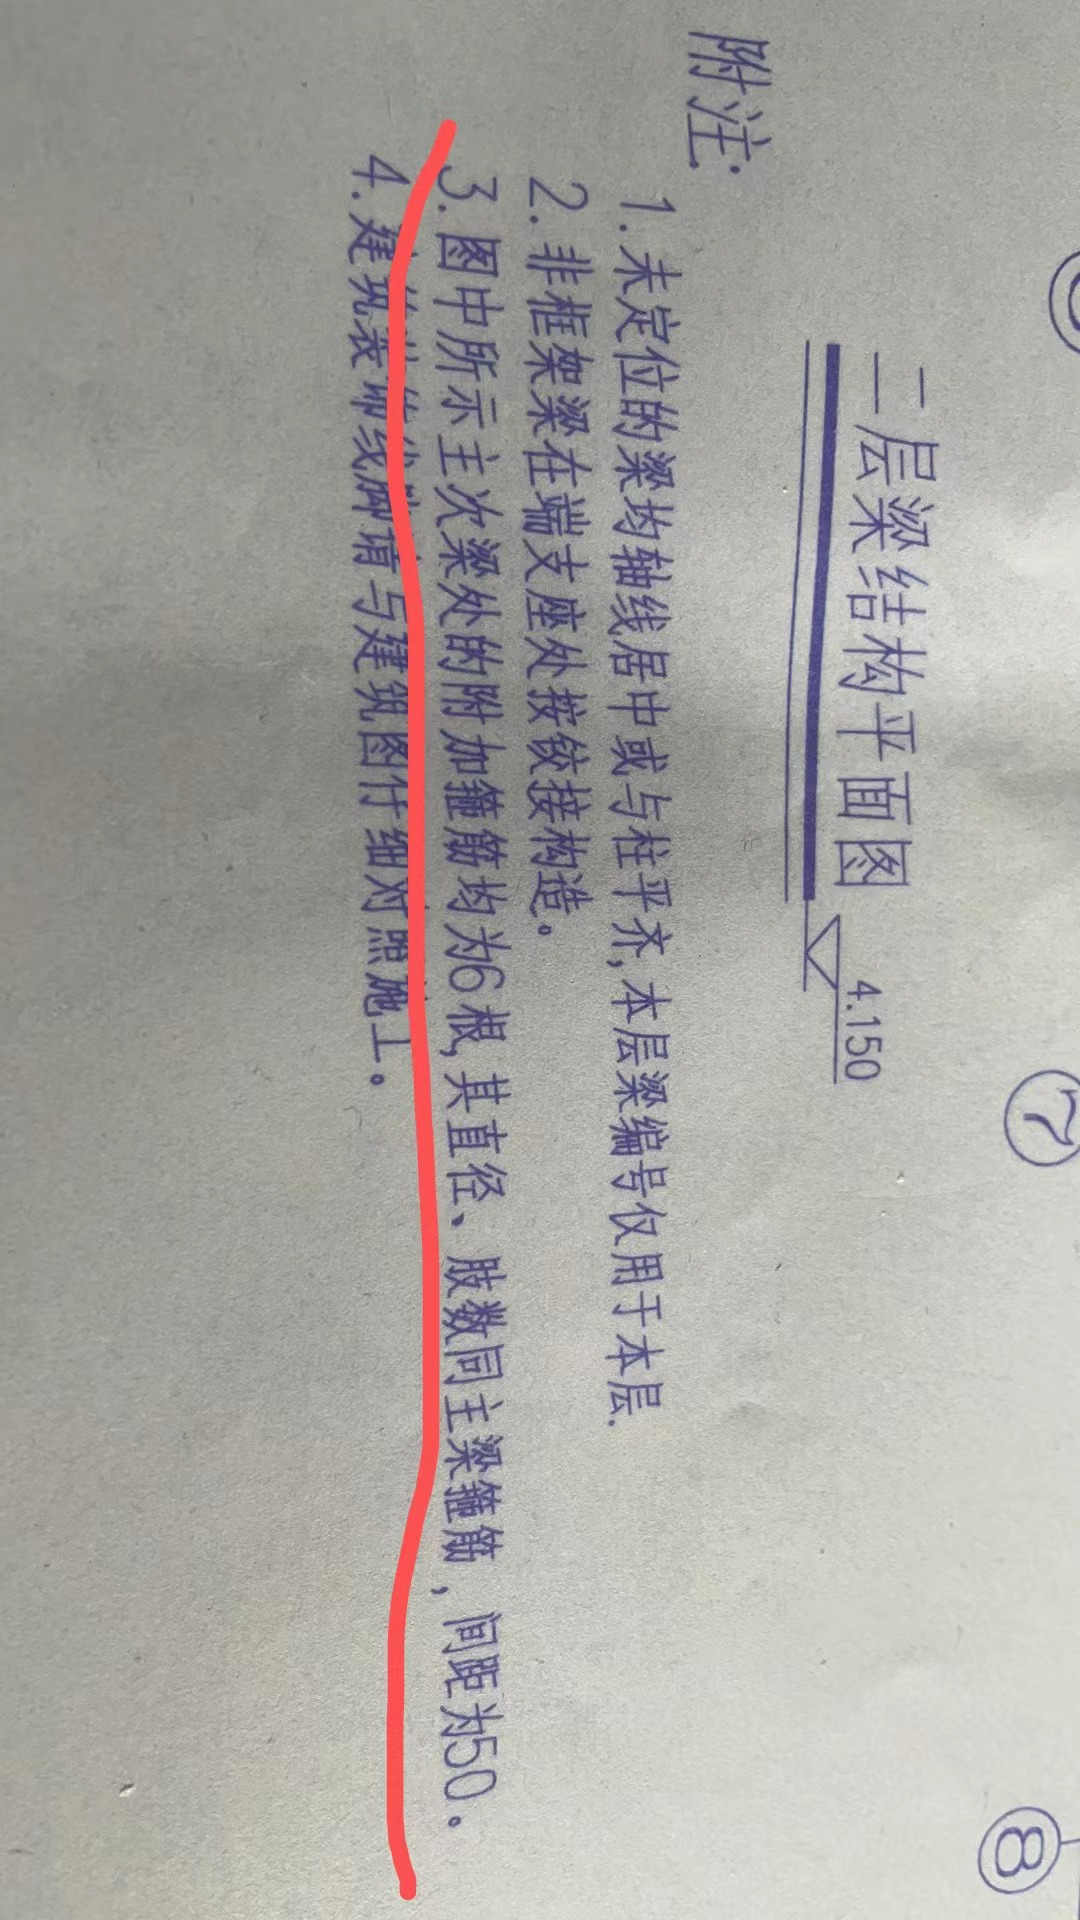 二层梁结构平面图 4.150
附注:
1.未定位的梁均轴线居中或与柱平齐,本层梁编号仅用于本层.
2.非框架梁在端支座处按铰接构造。
3.图中所示主次梁处的附加箍筋均为6根,其直径、肢数同主梁箍筋,间距为50。
4.建筑装饰线脚请与建筑图仔细对照施工。
7
8